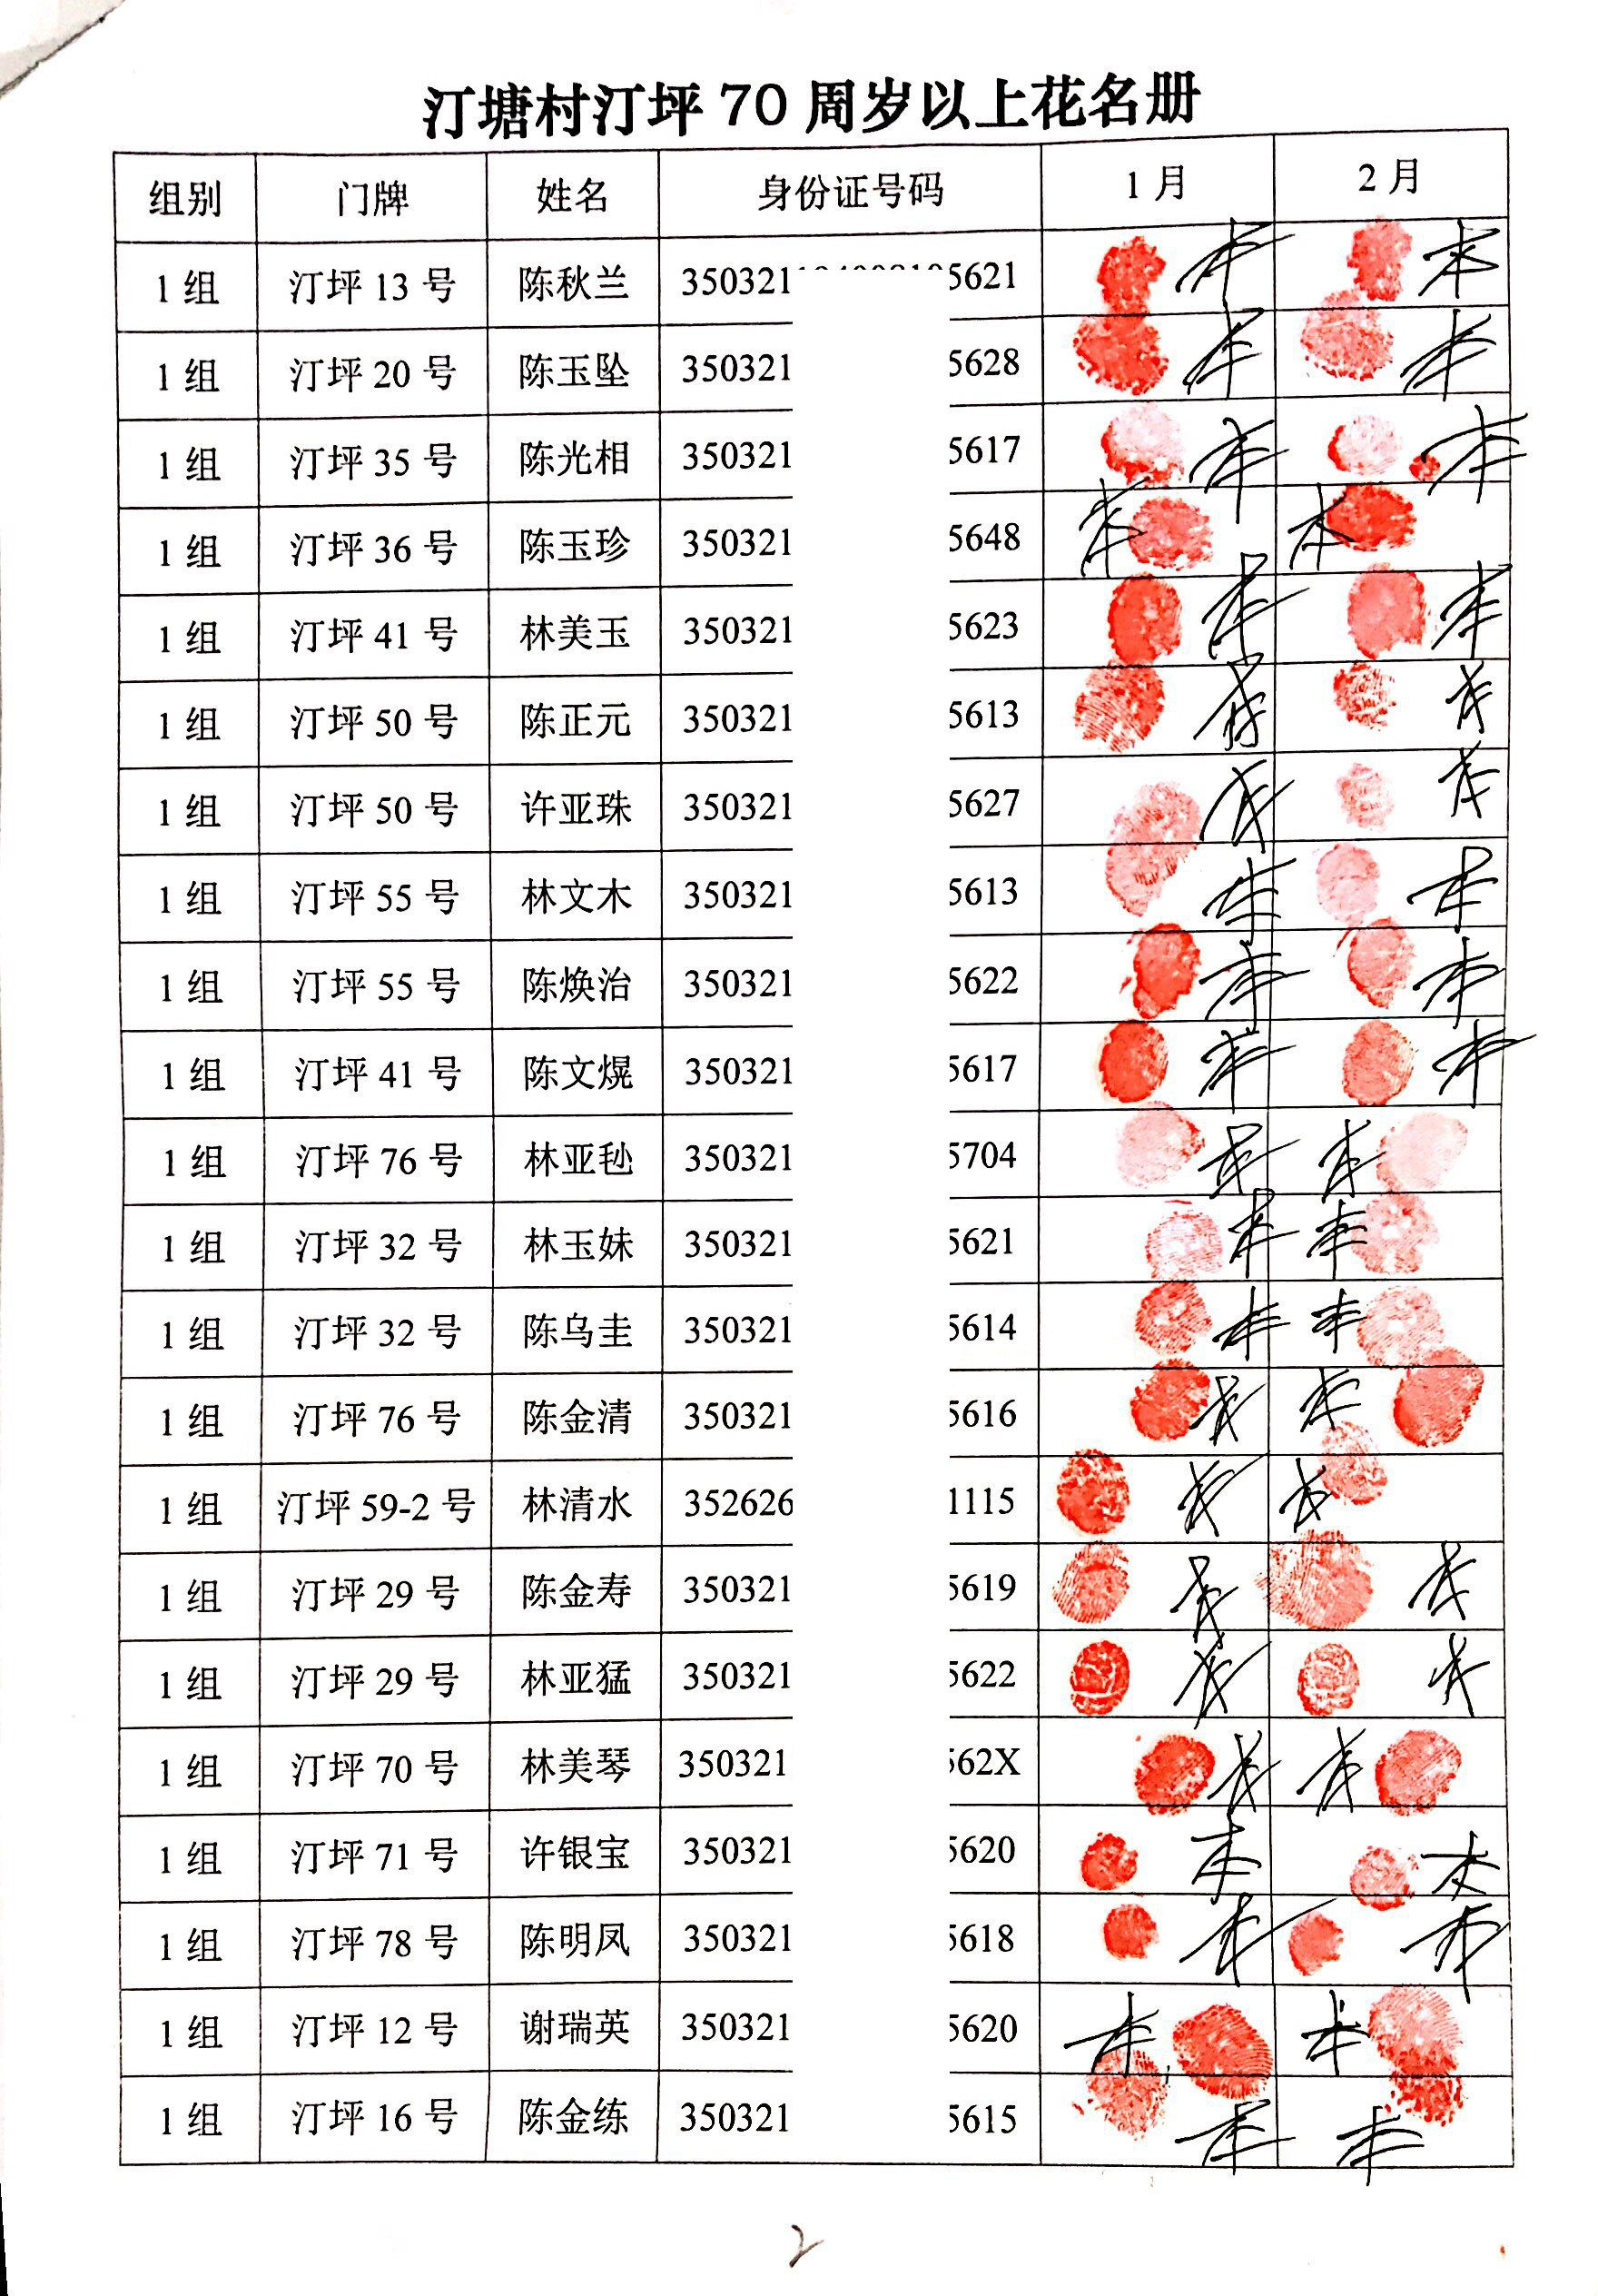 汀塘村汀坪 70 周岁以上花名册
组别 门牌 姓名 身份证号码 1 月 2 月
1 组 汀坪 13 号 陈秋兰 350321 5621 本 本
1 组 汀坪 20 号 陈玉坠 350321 5628 本 本
1 组 汀坪 35 号 陈光相 350321 5617 本 本
1 组 汀坪 36 号 陈玉珍 350321 5648 本 本
1 组 汀坪 41 号 林美玉 350321 5623 本 本
1 组 汀坪 50 号 陈正元 350321 5613
1 组 汀坪 50 号 许亚珠 350321 5627
1 组 汀坪 55 号 林文木 350321 5613 本 本
1 组 汀坪 55 号 陈焕治 350321 5622 本 本
1 组 汀坪 41 号 陈文熀 350321 5617 本 本
1 组 汀坪 76 号 林亚毜 350321 5704 本 本
1 组 汀坪 32 号 林玉妹 350321 5621 本 本
1 组 汀坪 32 号 陈乌圭 350321 5614 本 本
1 组 汀坪 76 号 陈金清 350321 5616 本
1 组 汀坪 59-2 号 林清水 352626 1115
1 组 汀坪 29 号 陈金寿 350321 5619
1 组 汀坪 29 号 林亚猛 350321 5622
1 组 汀坪 70 号 林美琴 350321 562X
1 组 汀坪 71 号 许银宝 350321 5620 本 本
1 组 汀坪 78 号 陈明凤 350321 5618 本 本
1 组 汀坪 12 号 谢瑞英 350321 5620 本 本
1 组 汀坪 16 号 陈金练 350321 5615 本 本
2